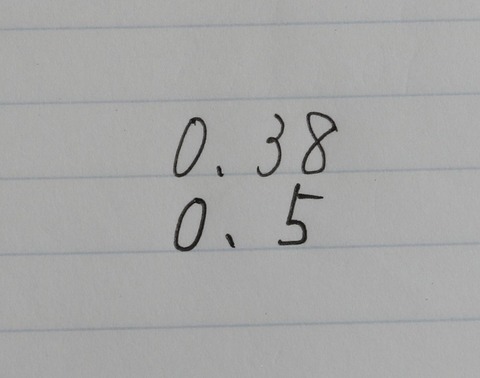 0.38
0.5